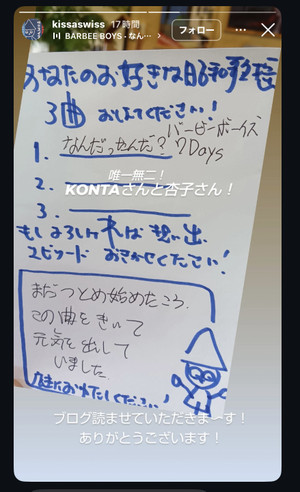 kissaswiss 17時間
BARBEE BOYS・なん…
フォロー
あなたのお好きな昭和歌謡
3曲 おしえてください！
バービーボーイズ
1. なんだったんだ？7Days
唯一無二！
2.
KONTAさんと杏子さん！
3.
もしよろしければ 想い出
エピソード おきかせください！
まだつとめ始めたころ
この曲をきいて
元気を出して
いました
ブログ読ませていただきま〜す！
ありがとうございます！